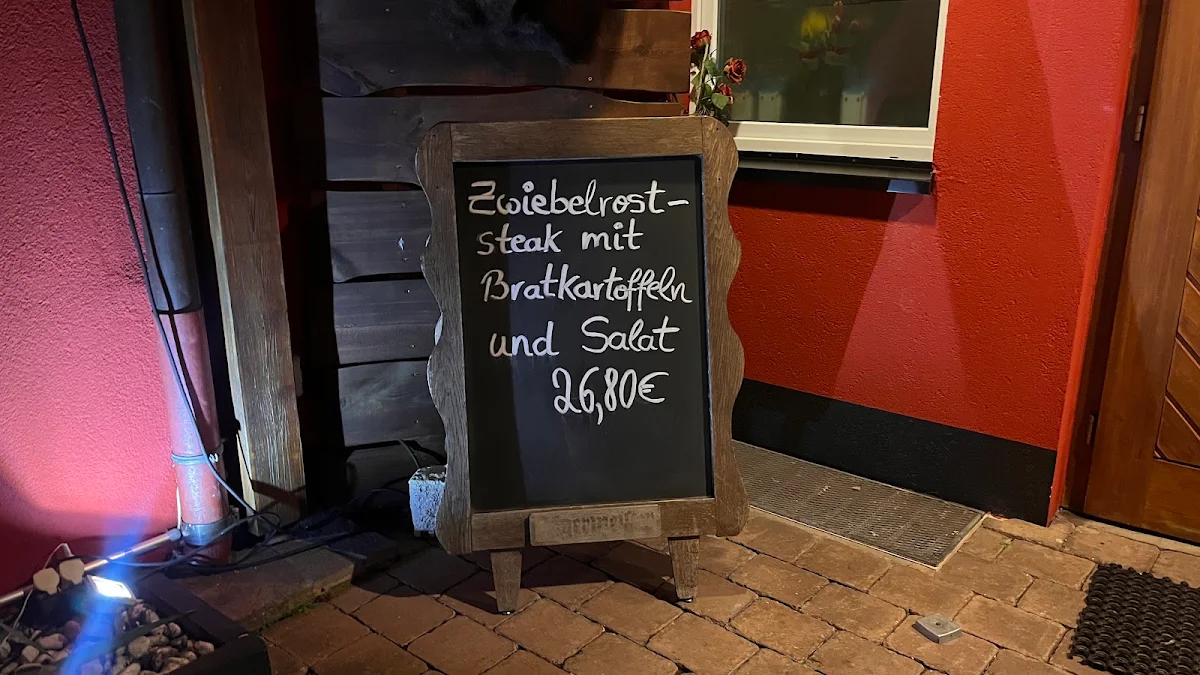 Zwiebelrost-
steak mit
Bratkartoffeln
und Salat
26,80€